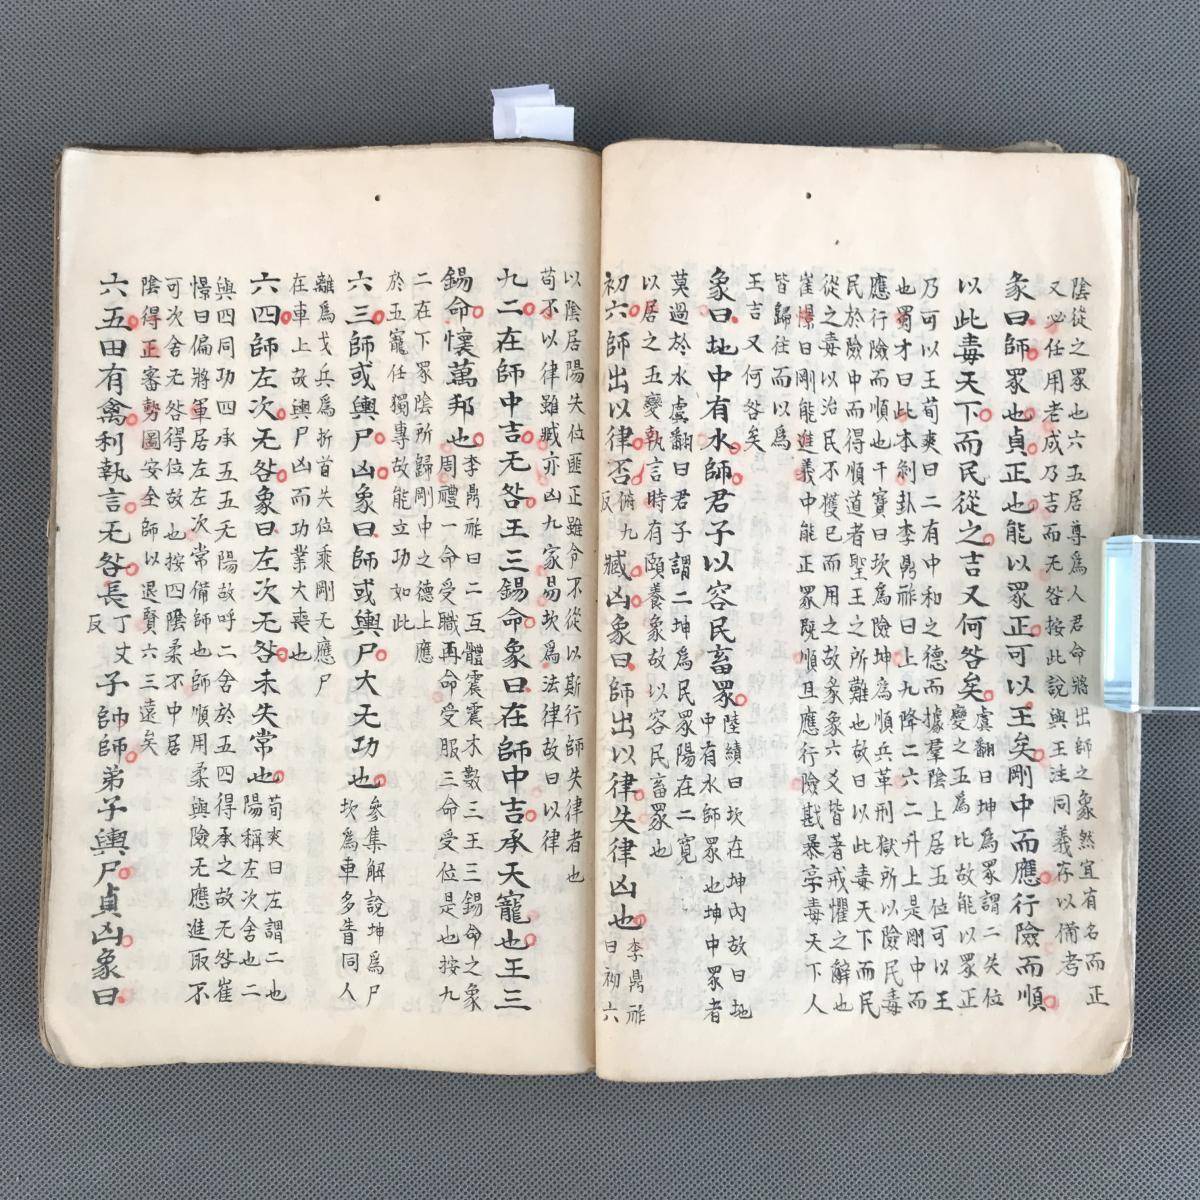 陰從之眾也六五居尊爲人君命將出師之象然宜有名而正
又必任用老成乃吉而无咎按此說與王注同義存以備考
彖曰師眾也貞正也能以眾正可以王矣剛中而應行險而順
以此毒天下而民從之吉又何咎矣
虞翻曰坤爲眾謂二失位
變之五爲比故能以眾正
乃可以王荀爽曰二有中和之德而據羣陰上居五位可以王
也蜀才曰此本剝卦李鼎祚曰上九降二六二升上是剛中而
應行險而順也干寶曰坎爲險坤爲順兵革刑獄所以險民毒
民於險中而得順道者聖王之所難也故曰以此毒天下而民
從之毒以治民不獲已而用之故彖象六爻皆著戒懼之辭也
崔憬曰剛能進義中能正眾旣順且應行險戡暴亭毒天下人
皆歸往而以爲
王吉又何咎矣
象曰地中有水師君子以容民畜眾
陸績曰坎在坤內故曰地
中有水師眾也坤中眾者
莫過於水虞翻曰君子謂二坤爲民眾陽在二寬
以居之五變執言時有頤養象故以容民畜眾也
初六師出以律否
俯九
反
臧凶象曰師出以律失律凶也
李鼎祚
曰初六
以陰居陽失位匪正雖令不從以斯行師失律者也
苟不以律雖臧亦凶九家易坎爲法律故曰以律
九二在師中吉无咎王三錫命象曰在師中吉承天寵也王三
錫命懷萬邦也
李鼎祚曰二互體震震木數三王三錫命之象
周禮一命受職再命受服三命受位是也按九
二在下眾陰所歸剛中之德上應
於五寵任獨專故能立功如此
六三師或輿尸凶象曰師或輿尸大无功也
參集解說坤爲尸
坎爲車多眚同人
離爲戈兵爲折首失位乘剛无應尸
在車上故輿尸凶而功業大喪也
六四師左次无咎象曰左次无咎未失常也
荀爽曰左謂二也
陽稱左次舍也二
與四同功四承五五无陽故呼二舍於五四得承之故无咎崔
憬曰偏將軍居左左次常備師也師順用柔與險无應進取不
可次舍无咎得位故也按四陰柔不中居
陰得正審勢圖安全師以退賢六三遠矣
六五田有禽利執言无咎長
丁丈
反
子帥師弟子輿尸貞凶象曰